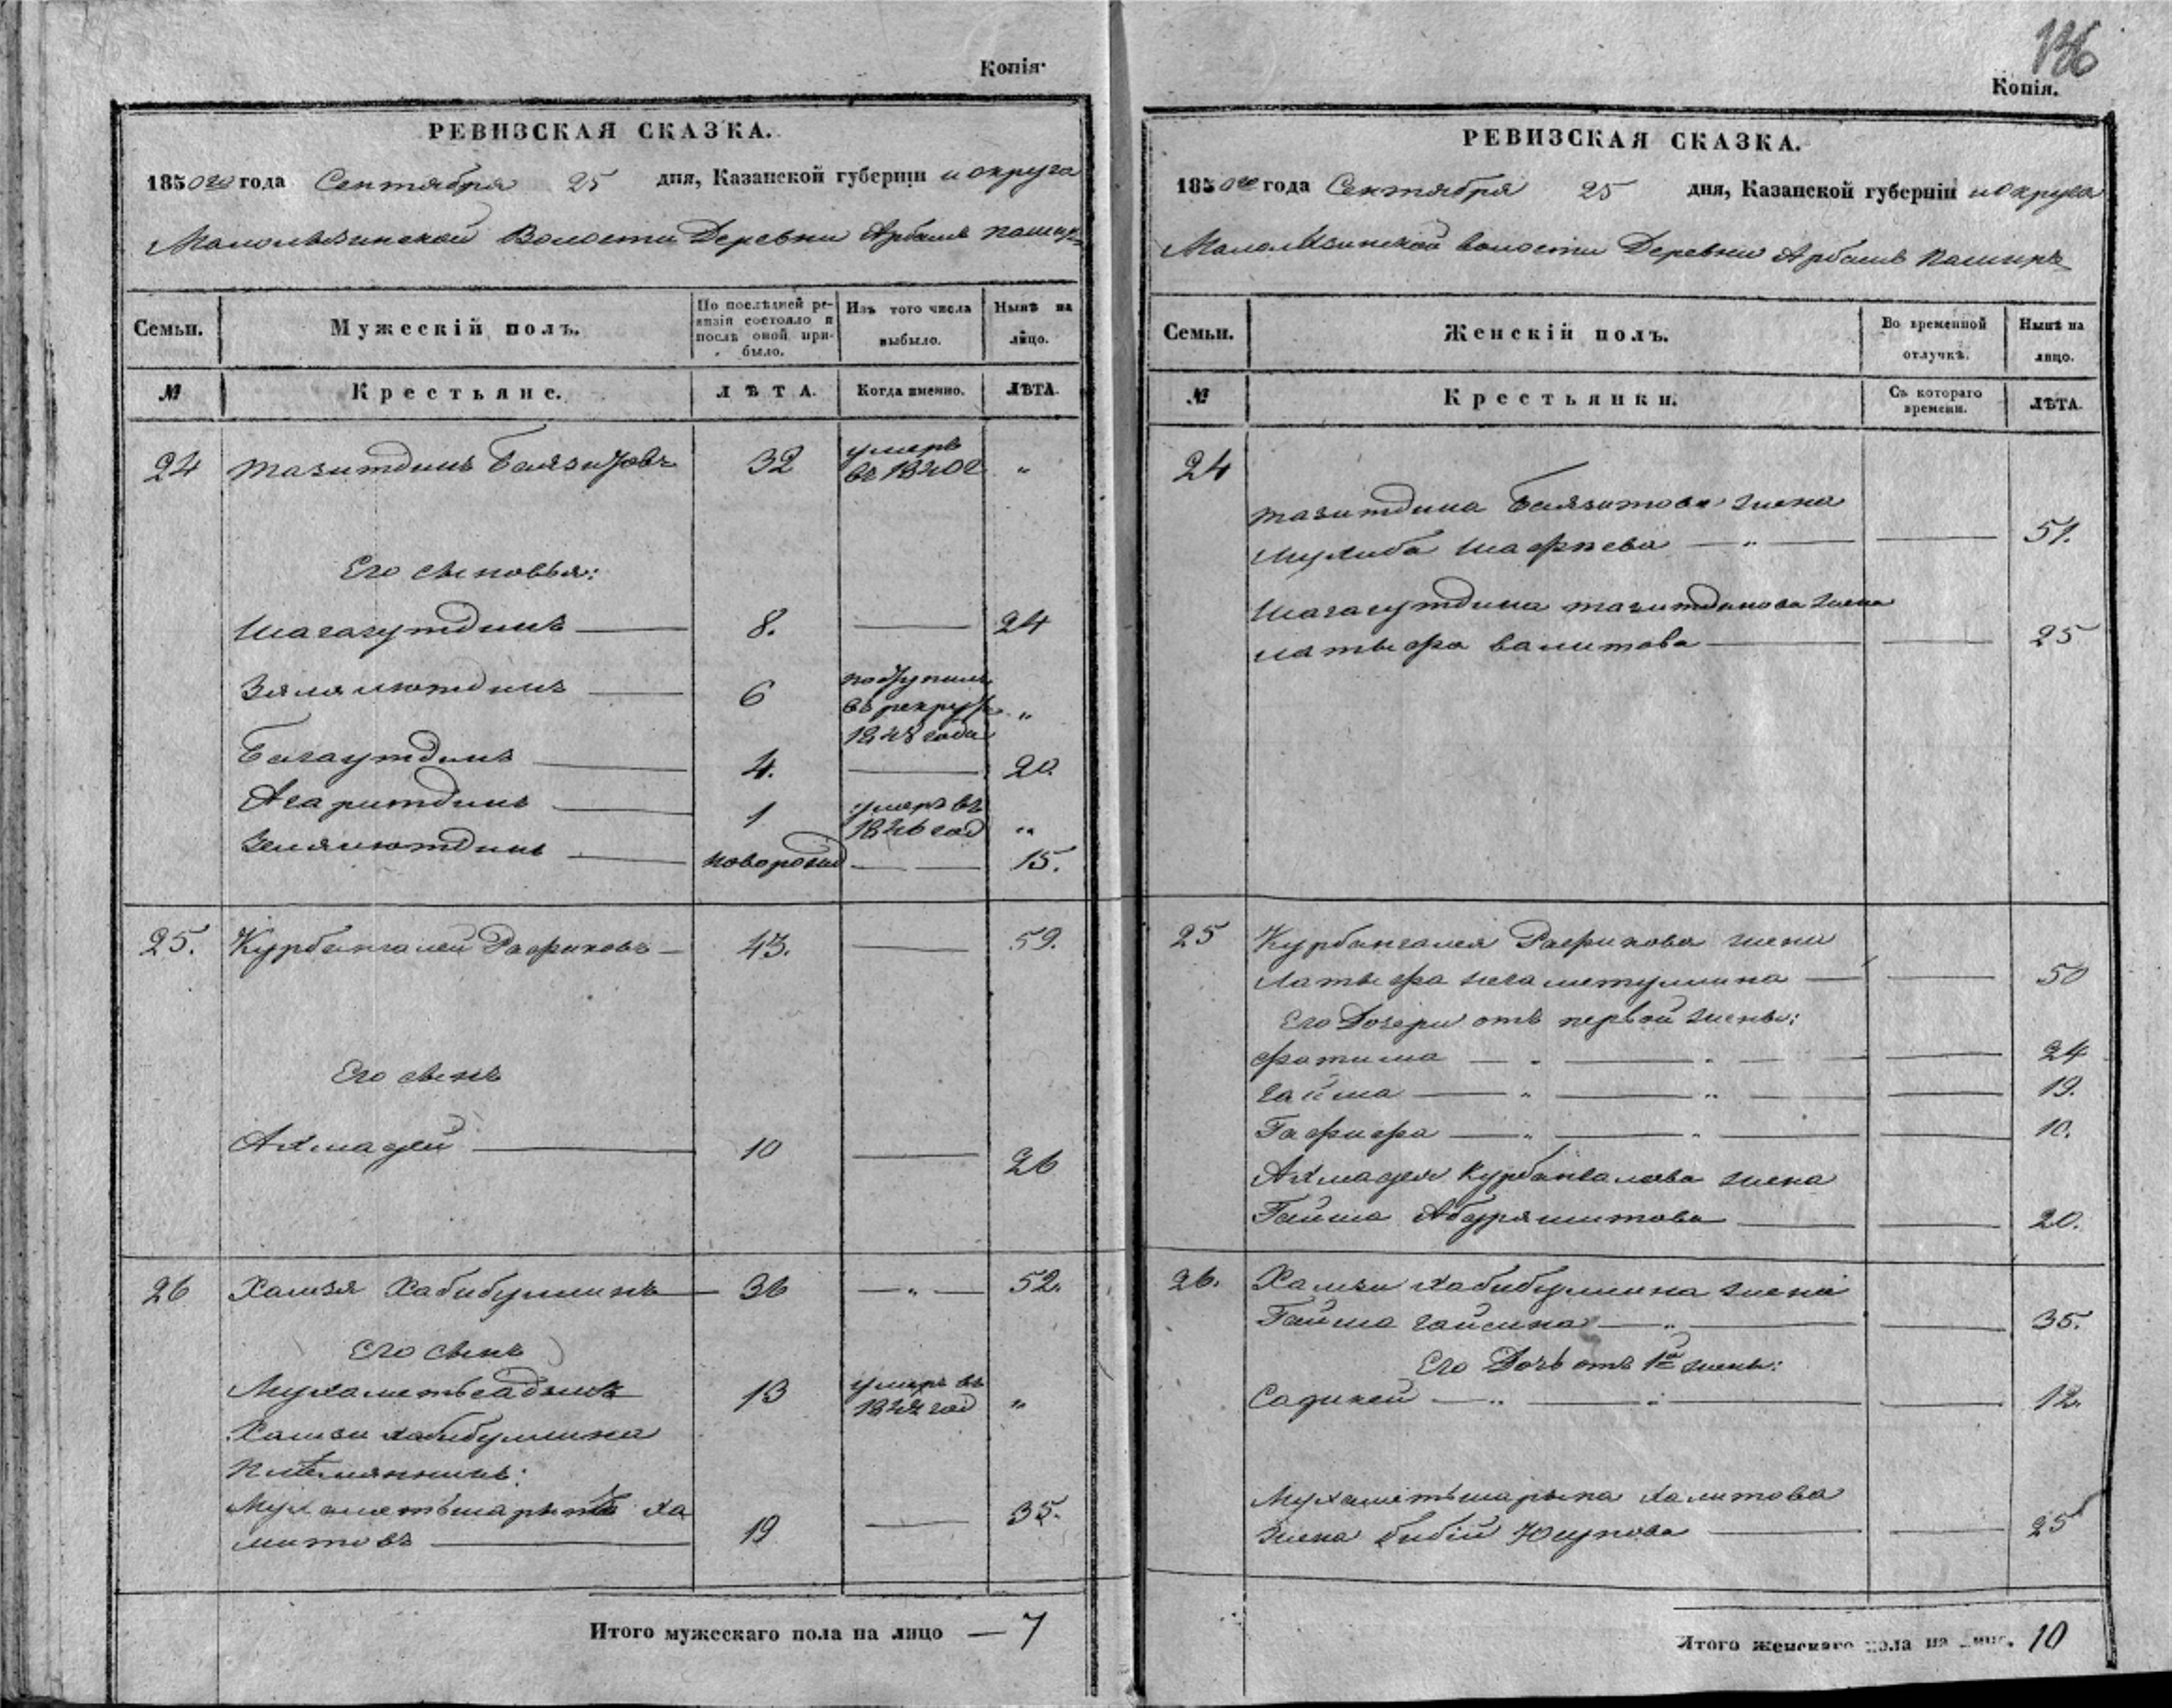 Копія.
РЕВИЗСКАЯ СКАЗКА.
1850го года Сентября 25 дня, Казанской губерніи и округа
Волости Деревни Арбашъ
Семьи. Мужескій полъ. По послѣдней ревизіи состояло и послѣ оной прибыло. Изъ того числа выбыло. Нынѣ на лицо.
№ Крестьяне. ЛѢТА. Когда именно. ЛѢТА.
24 Тазитдинъ Баязитовъ 32 умеръ въ 1840 г. "
Его сыновья:
Шагагутдинъ 8. 24
6 поступилъ въ рекруты года "
Багаутдинъ 4. 20.
1 умеръ въ 1846 год "
новорожд 15.
25. Курбангалей Рафиковъ 43. 59.
Его сынъ
Ахмадей 10 26
26 Хамзя Хабибуллинъ 36 " 52.
Его сынъ
Мухаметьсадыкъ 13 умеръ въ год "
Хамзи Хабибуллина
племянникъ:
Мухаметьшарыпъ Ха
митовъ 19 35.
Итого мужескаго пола на лицо — 7
136
Копія.
РЕВИЗСКАЯ СКАЗКА.
1850го года Сентября 25 дня, Казанской губерніи и округа
волости Деревни Арбашъ
Семьи. Женскій полъ. Во временной отлучкѣ. Нынѣ на лицо.
№ Крестьянки. Съ котораго времени. ЛѢТА.
24
Тазитдина Баязитова жена
Шафѣева " 51.
Шагагутдина Тазитдинова жена
Латыфа Валитова 25
25 Курбангалея Рафикова жена
Латыфа Негаметуллина 50
Его Дочери отъ первой жены:
Фатима 24
Гайша 19.
Гафифа 10.
Ахмадея Курбангалеева жена
Гайша Абдряшитова 20.
26. Хамзи Хабибуллина жена
Гайша Гайсина 35.
Его Дочь отъ 1й жены:
12.
Мухаметьшарыпа Хамитова
жена Бибій Юсупова 25
Итого женскаго пола на лицо. 10